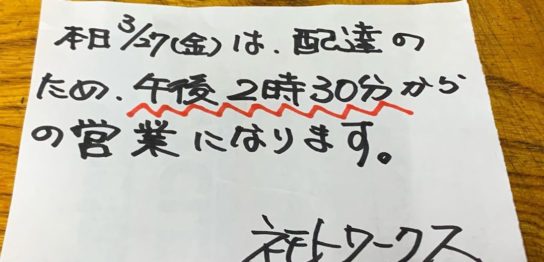 本日3/27(金)は、配達の
ため、午後2時30分から
の営業になります。
ワークス